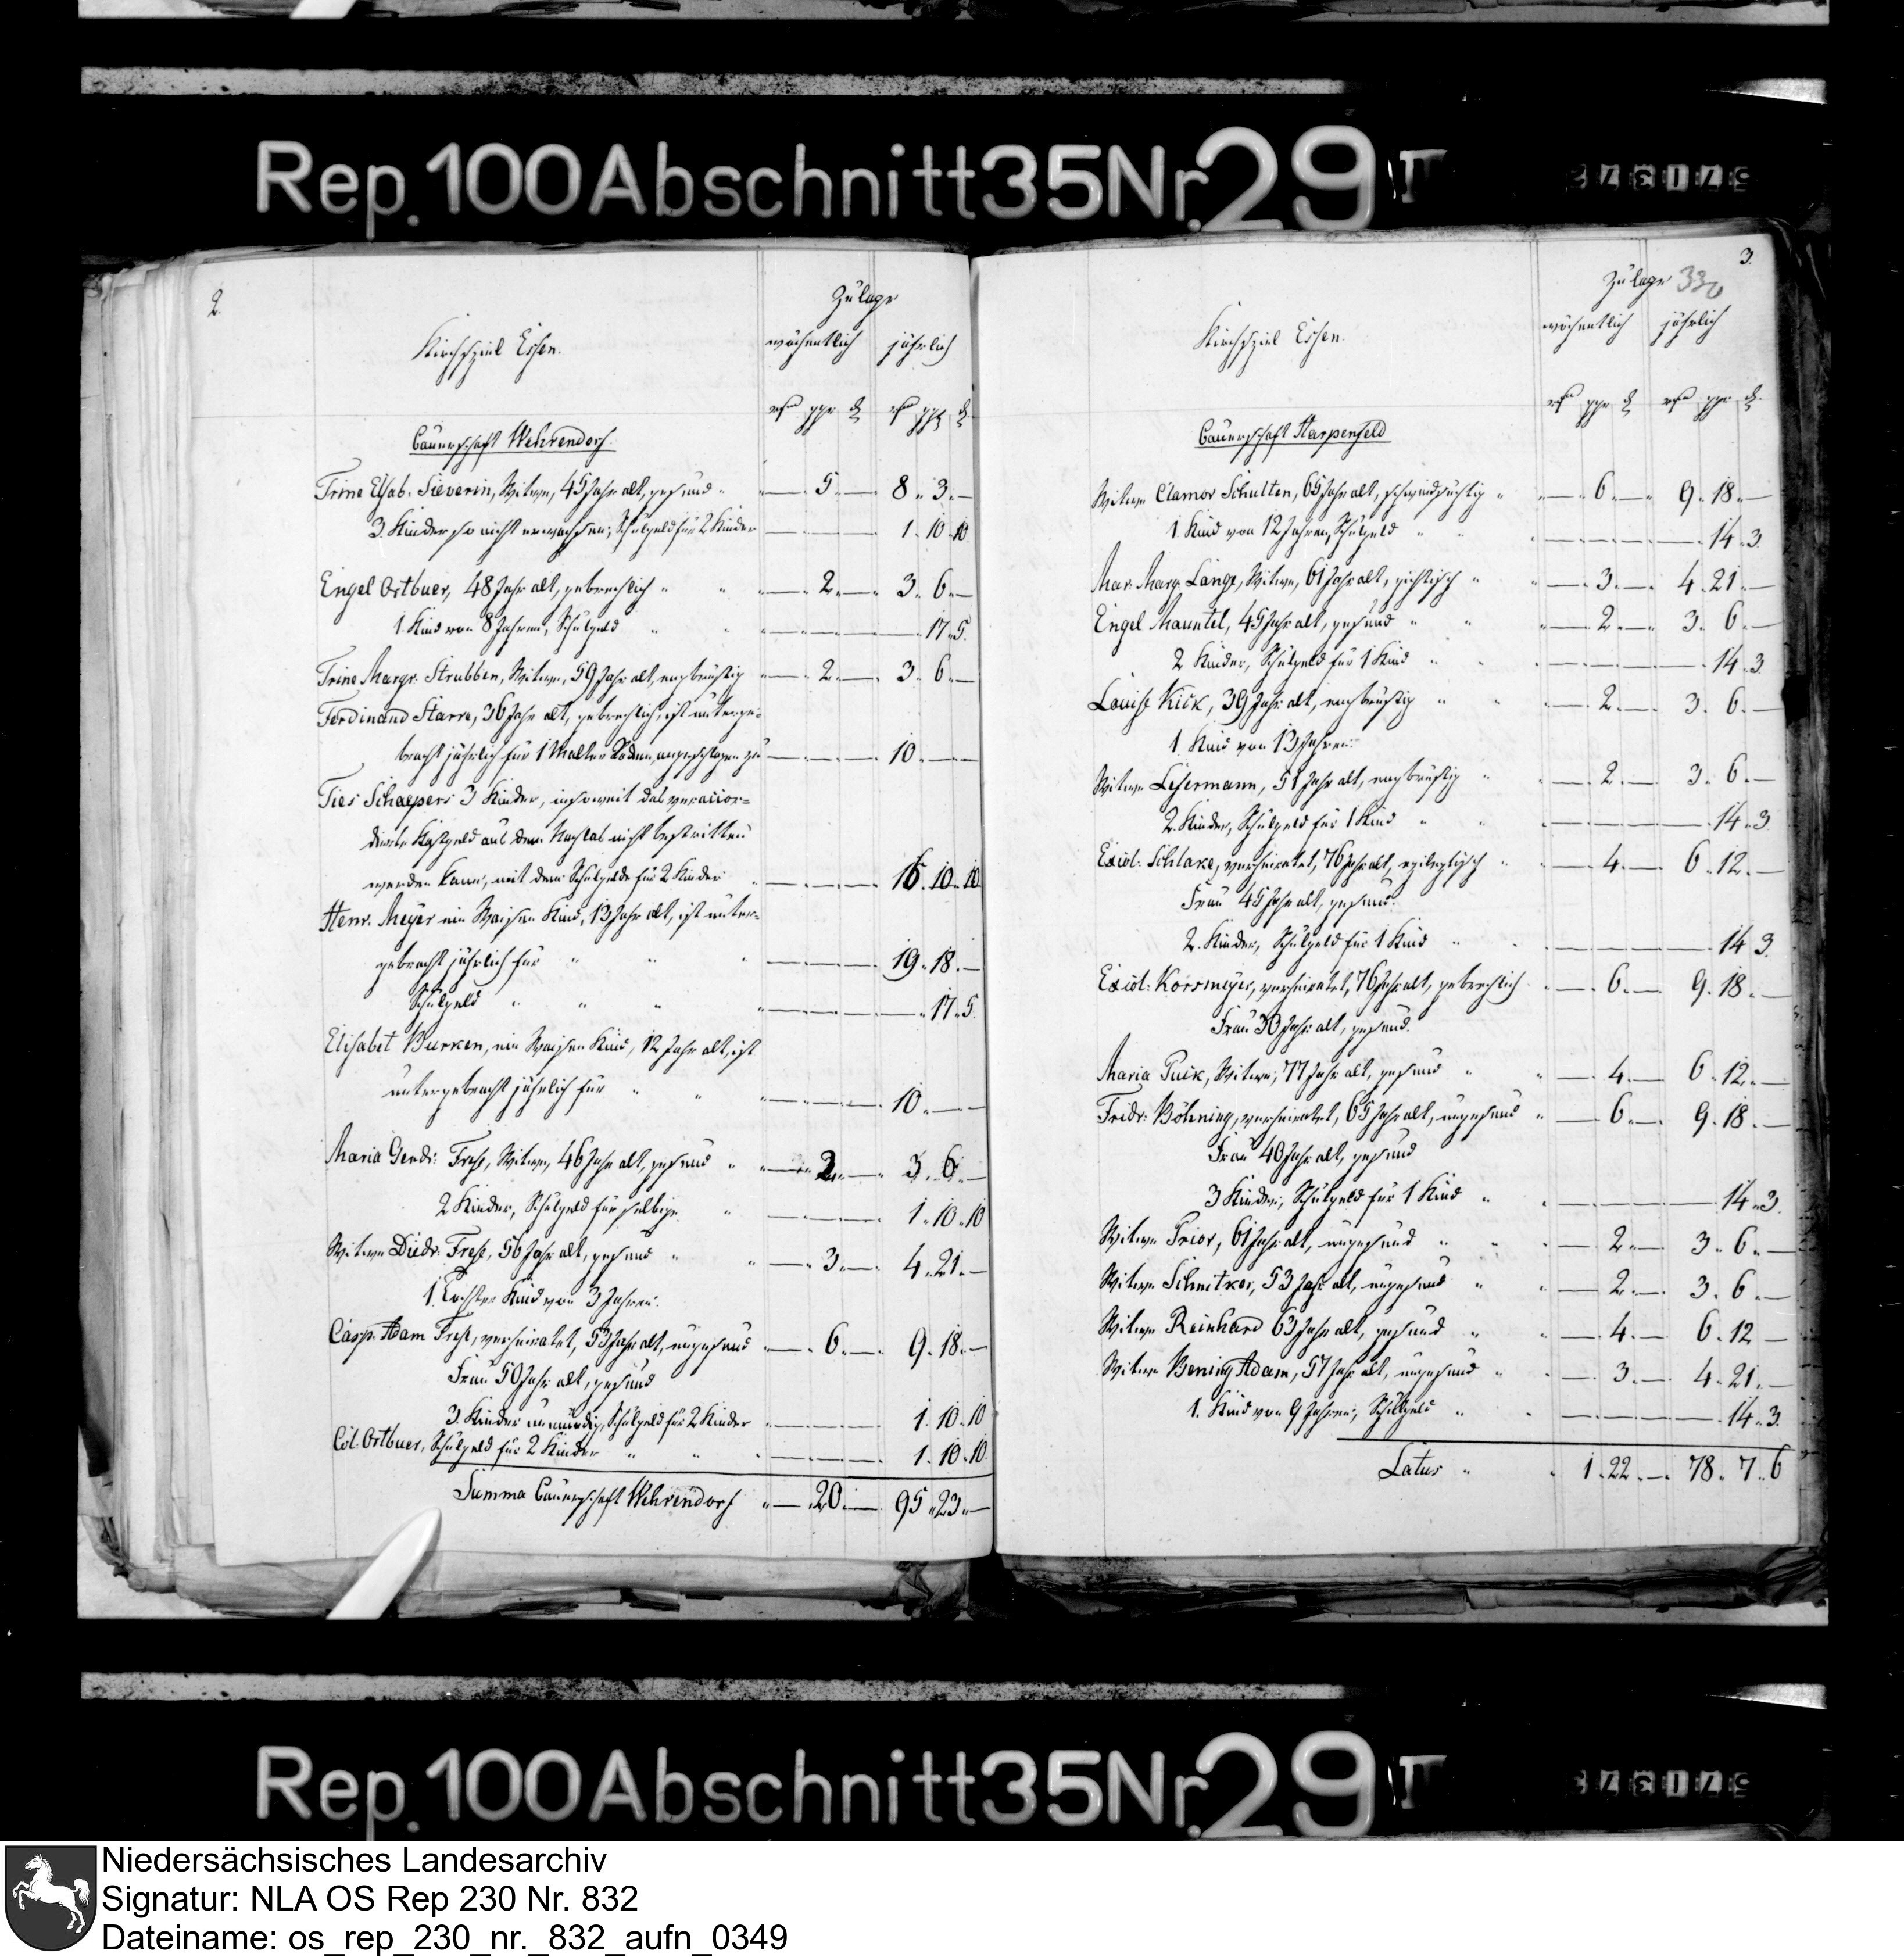 Rep. 100 Abschnitt 35 Nr. 29 I
2.
Zulage
Kirchspiel Essen.
wöchentlich jährlich
ggr ₰ ggr ₰
Bauerschaft Wehrendorf.
Trine Elsab: Sieverin, Witwe, 45 Jahr alt, gesund " — 5 — 8 " 3 " —
3. Kinder so nicht erwachsen; Schulgeld für 2 Kinder — 1 " 10 " 10
Engel Ortbuer, 48 Jahr alt, gebrechlich " " — 2 — 3 " 6 " —
1. Kind von 8 Jahren, Schulgeld " " — 17 " 5.
Trine Margr. Strubben, Witwe, 59 Jahr alt, engbrüstig — 2 — 3 " 6 " —
Ferdinand Starre, 36 Jahr alt, gebrechlich, ist unterge-
bracht jährlich für 1 Malter Rocken, angeschlagen zu — 10 " —
Ties Schaepers 3 Kinder, insoweit das veraccor-
dirte Kostgeld aus dem Nachlas nicht bestritten
werden kann, mit dem Schulgelde für 2 Kinder — 16 " 10 " 10
Henr. Meyer ein Waisen Kind, 13 Jahr alt, ist unter-
gebracht jährlich für " " " — 19 " 18 " —
Schulgeld " " " — 17 " 5.
Elisabet Burken, ein Waisen Kind, 12 Jahr alt, ist
untergebracht jährlich für " " — 10 " —
Maria Gerdr: Frese, Witwe, 46 Jahr alt, gesund " — 2 — 3 " 6 " —
2 Kinder, Schulgeld für selbige " — 1 " 10 " 10
Witwe Diedr: Frese, 56 Jahr alt, gesund " " — 3 — 4 " 21 " —
1. Tochter Kind von 3 Jahren.
Casp. Adam Frese, verheiratet, 53 Jahr alt, ungesund — 6 — 9 " 18 " —
Frau 50 Jahr alt, gesund
3. Kinder unmündig, Schulgeld für 2 Kinder — 1 " 10 " 10
Col: Ortbuer, Schulgeld für 2 Kinder " " " — 1 " 10 " 10
Summa Bauerschaft Wehrendorf " — 20 — 95 " 23 " —
3.
Zulage 330
Kirchspiel Essen.
wöchentlich jährlich
ggr ₰ ggr ₰
Bauerschaft Harpenfeld
Witwe Clamor Schulten, 65 Jahr alt, schwindsüchtig " — 6 — 9 " 18 " —
1. Kind von 12 Jahren, Schulgeld " " — 14 " 3.
Mar. Marg. Lange, Witwe, 61 Jahr alt, gichtisch " " — 3 — 4 " 21 " —
Engel Mauntel, 45 Jahr alt, gesund " " — 2 — 3 " 6 " —
2 Kinder, Schulgeld für 1 Kind " " — 14 " 3
Louise Kick, 39 Jahr alt, engbrüstig " " — 2 — 3 " 6 " —
1. Kind von 13 Jahren.
Witwe Lesermann, 51 Jahr alt, engbrüstig " — 2 — 3 " 6 " —
2. Kinder, Schulgeld für 1 Kind " " — 14 " 3
Exid: Schlake, verheiratet, 76 Jahr alt, epileptisch " — 4 — 6 " 12 " —
Frau 45 Jahr alt, gesund.
2. Kinder, Schulgeld für 1 Kind " " — 14 " 3.
Exid: Korsmeyer, verheiratet, 76 Jahr alt, gebrechlich — 6 — 9 " 18 " —
Frau 30 Jahr alt, gesund.
Maria Puck, Witwe, 77 Jahr alt, gesund " " — 4 — 6 " 12 " —
Fridr: Böhning, verheiratet, 65 Jahr alt, ungesund " — 6 — 9 " 18 " —
Frau 40 Jahr alt, gesund
3 Kinder, Schulgeld für 1 Kind " " — 14 " 3.
Witwe Prior, 61 Jahr alt, ungesund " " — 2 — 3 " 6 " —
Witwe Schnitker, 53 Jahr alt, ungesund " " — 2 — 3 " 6 " —
Witwe Reinhard 63 Jahr alt, gesund " " — 4 — 6 " 12 —
Witwe Bening Adam, 57 Jahr alt, ungesund " " — 3 — 4 " 21 " —
1. Kind von 9 Jahren, Schulgeld " " — 14 " 3.
Latus " " 1 " 22 " — 78 " 7 " 6
Rep. 100 Abschnitt 35 Nr. 29 I
Niedersächsisches Landesarchiv
Signatur: NLA OS Rep 230 Nr. 832
Dateiname: os_rep_230_nr._832_aufn_0349